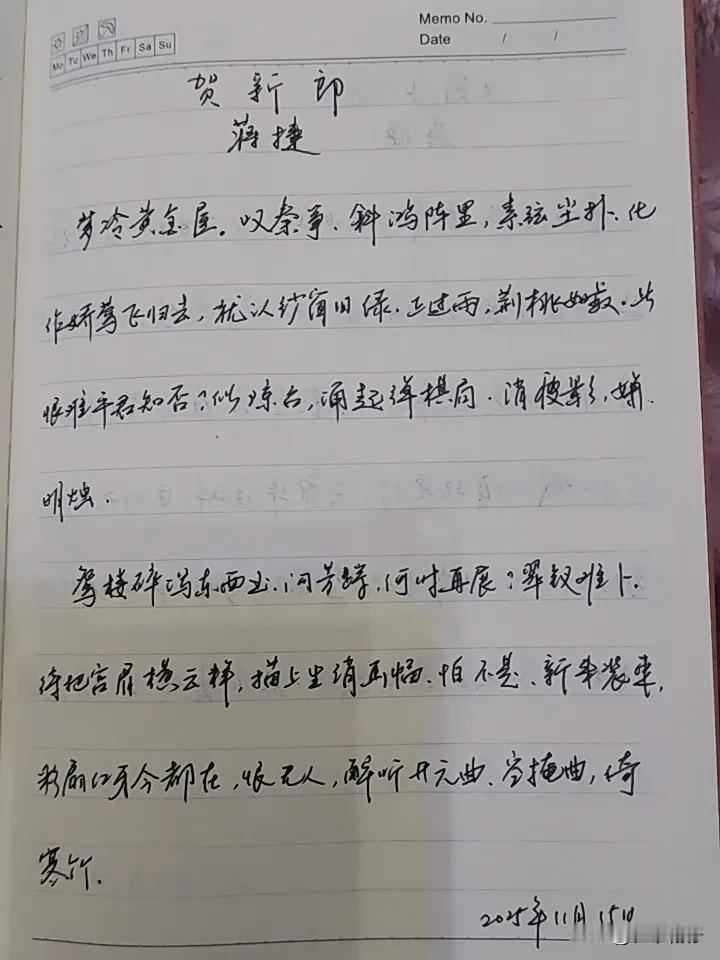 Memo No.
Mo Tu We Th Fr Sa Su
Date / /
贺新郎
蒋捷
梦冷黄金屋。叹秦筝、斜鸿阵里,素弦尘扑。化
作娇莺飞归去,犹认纱窗旧绿。正过雨,荆桃如菽。此
恨难平君知否?似琼台,涌起弹棋局。消瘦影,嫌
明烛。
鸳楼碎泻东西玉。问芳踪,何时再展?翠钗难卜。
待把宫眉横云样,描上生绡画幅。怕不是、新来装束。
彩扇红牙今都在,恨无人,解听开元曲。空掩曲,倚
寒竹。
2025年11月15日